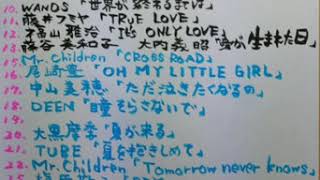 10. WANDS「世界が終るまでは
11. 藤井フミヤ「TRUE LOVE」
12. 福山雅治「IT'S ONLY LOVE」
13. 藤谷美和子 大内義昭「愛が生まれた日」
15. Mr.Children「CROSS ROAD」
16. 尾崎豊「OH MY LITTLE GIRL」
17. 中山美穂「ただ泣きたくなるの」
18. DEEN「瞳そらさないで」
19.
20. 大黒摩季「夏が来る」
21. TUBE「夏を抱きしめて」
22. Mr.Children「Tomorrow never knows」